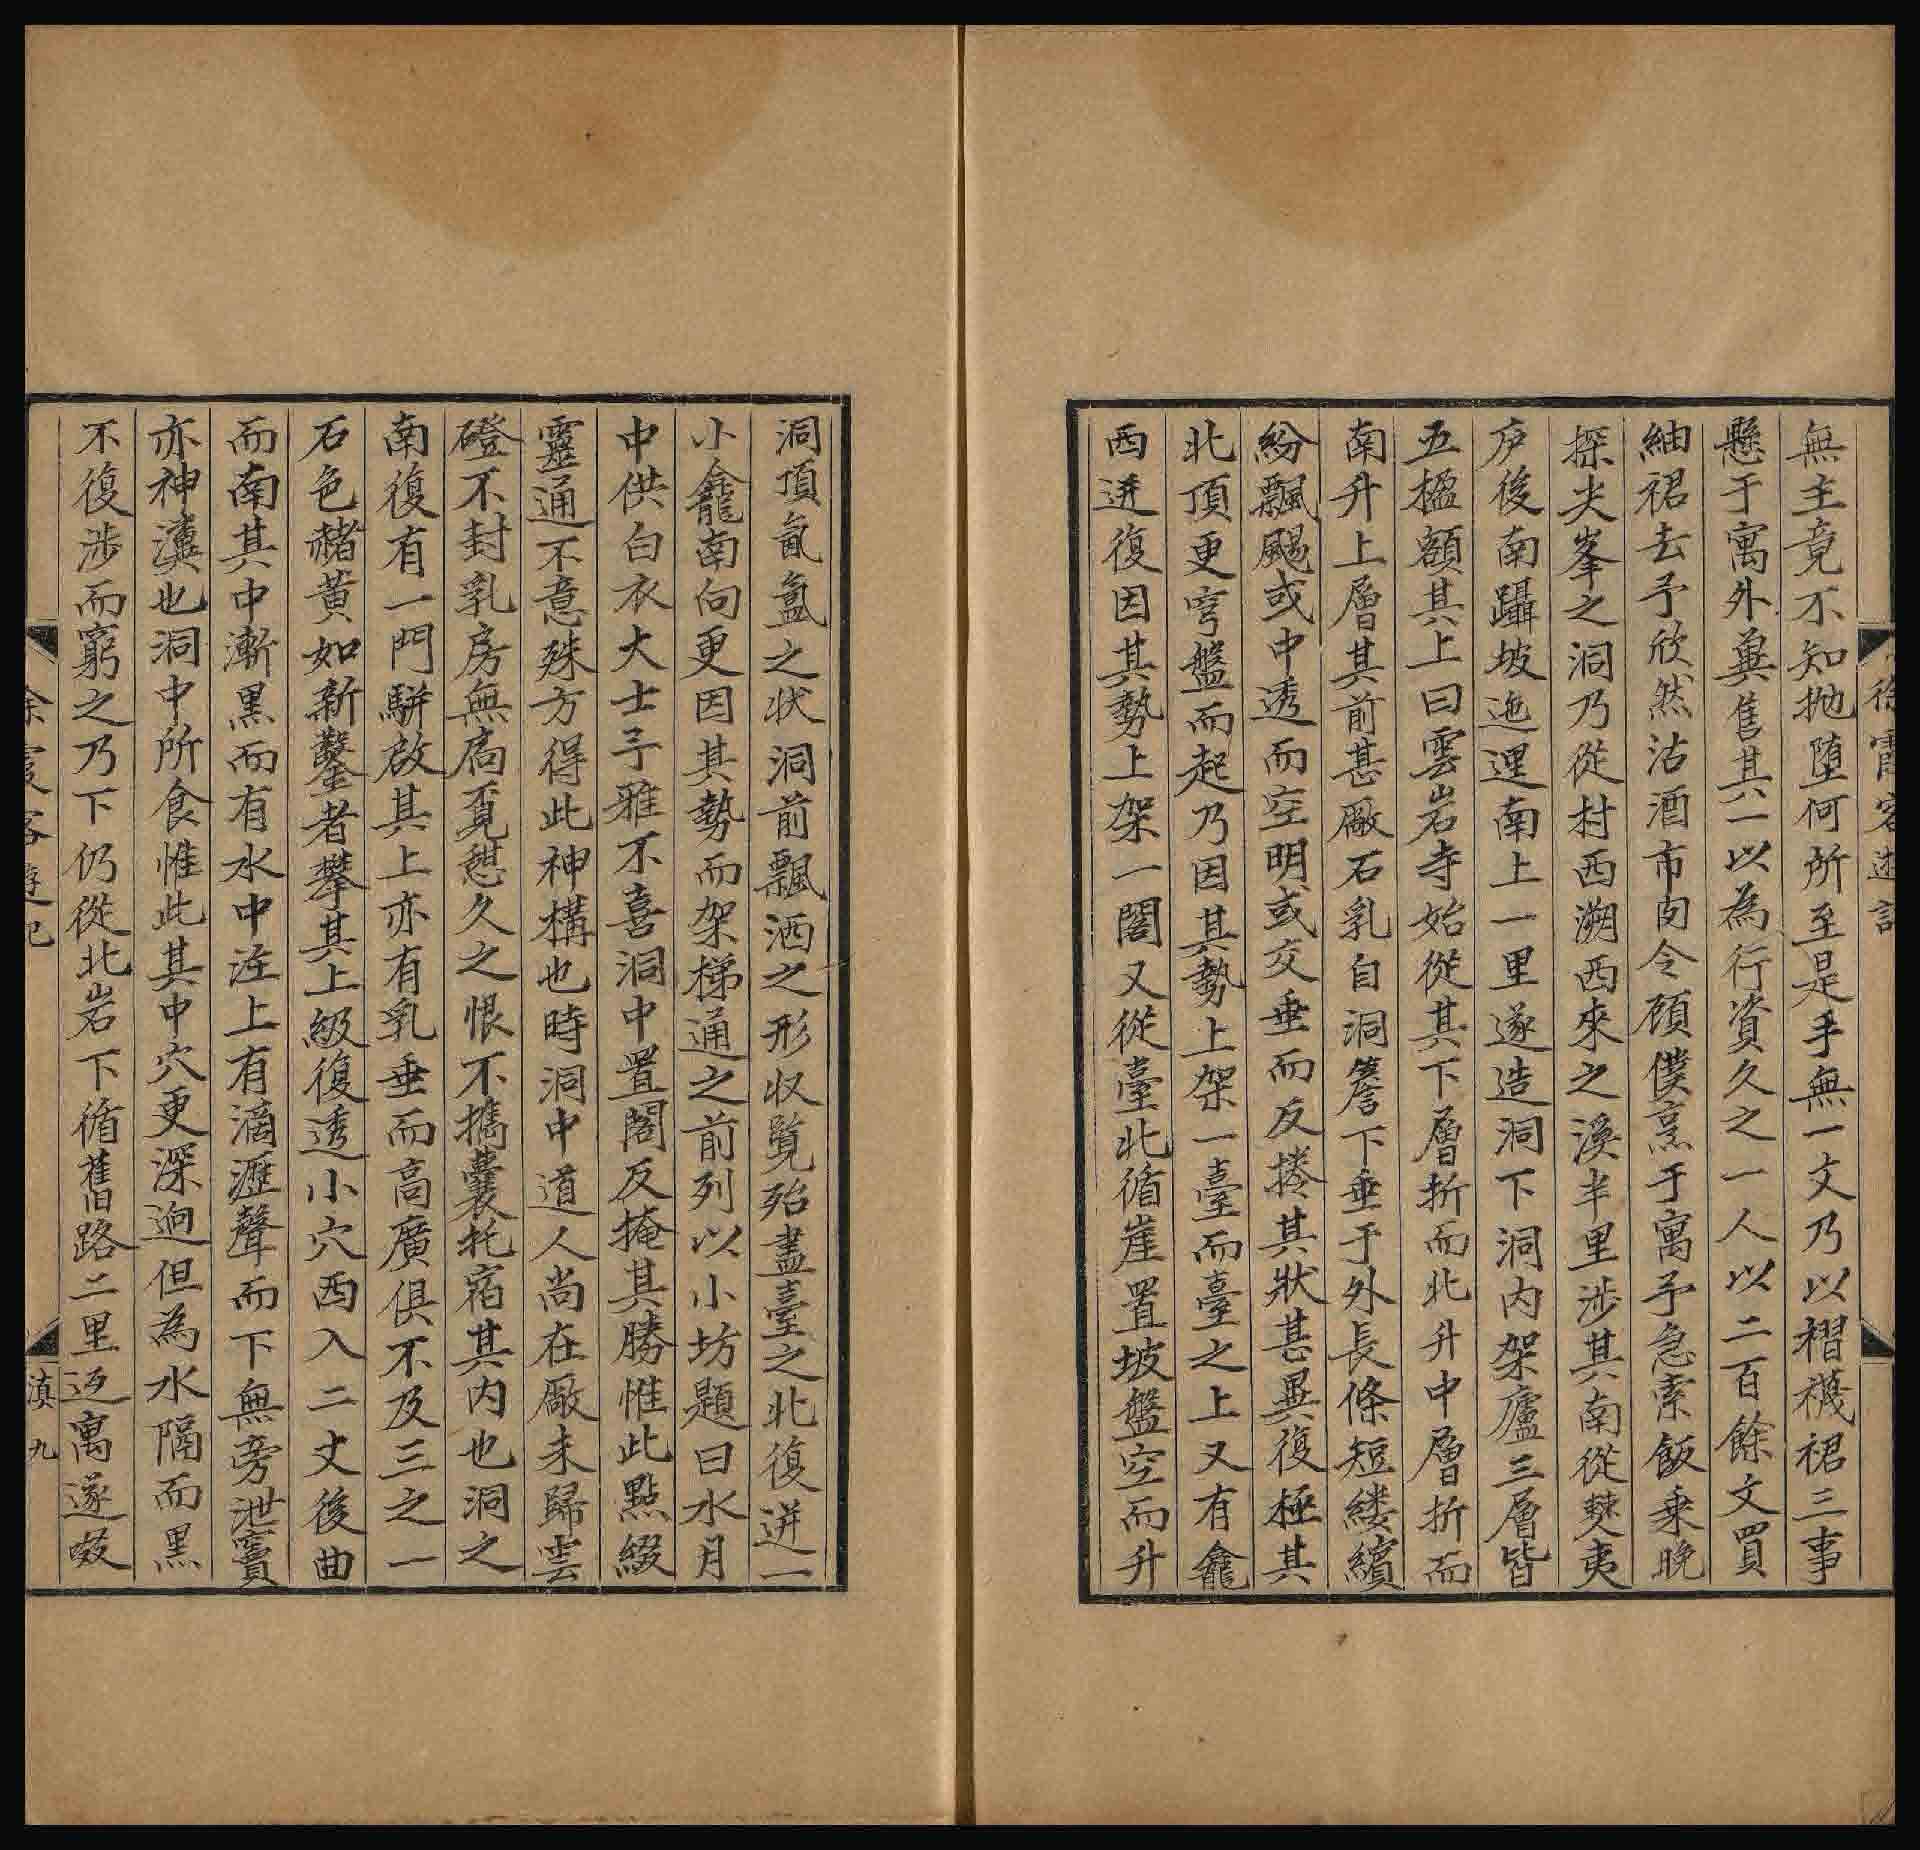 徐霞客遊記
無主竟不知抛墮何所至是手無一文乃以褶襪裙三事
懸于寓外冀售其一以為行資久之一人以二百餘文買
紬裙去予欣然沽酒市肉令顧僕烹于寓予急索飯乗晚
探尖峯之洞乃從村西溯西來之溪半里涉其南從僰夷
庐後南躡坡迤逦南上一里遂造洞下洞内架廬三層皆
五楹額其上曰雲岩寺始從其下層折而北升中層折而
南升上層其前甚厰石乳自洞簷下垂于外長條短縷繽
紛飄颺或中透而空明或交垂而反捲其狀甚異復極其
北頂更穹盤而起乃因其勢上架一臺而臺之上又有龕
西迸復因其勢上架一閣又從臺北循崖置坡盤空而升
洞頂氤氳之状洞前飄洒之形収覧殆盡臺之北復迸一
小龕南向更因其勢而架梯通之前列以小坊題曰水月
中供白衣大士予雅不喜洞中置閣反掩其勝惟此點綴
靈通不意殊方得此神構也時洞中道人尚在厰未歸雲
磴不封乳房無扄覔憇久之恨不攜囊托宿其内也洞之
南復有一門駢啟其上亦有乳垂而高廣俱不及三之一
石色赭黄如新鑿者攀其上級復透小穴西入二丈後曲
而南其中漸黒而有水中注上有滴瀝聲而下無旁泄竇
亦神瀵也洞中所食惟此其中穴更深逈但為水隔而黒
不復涉而窮之乃下仍從北岩下循舊路二里返寓遂啜
徐霞客遊記
滇九